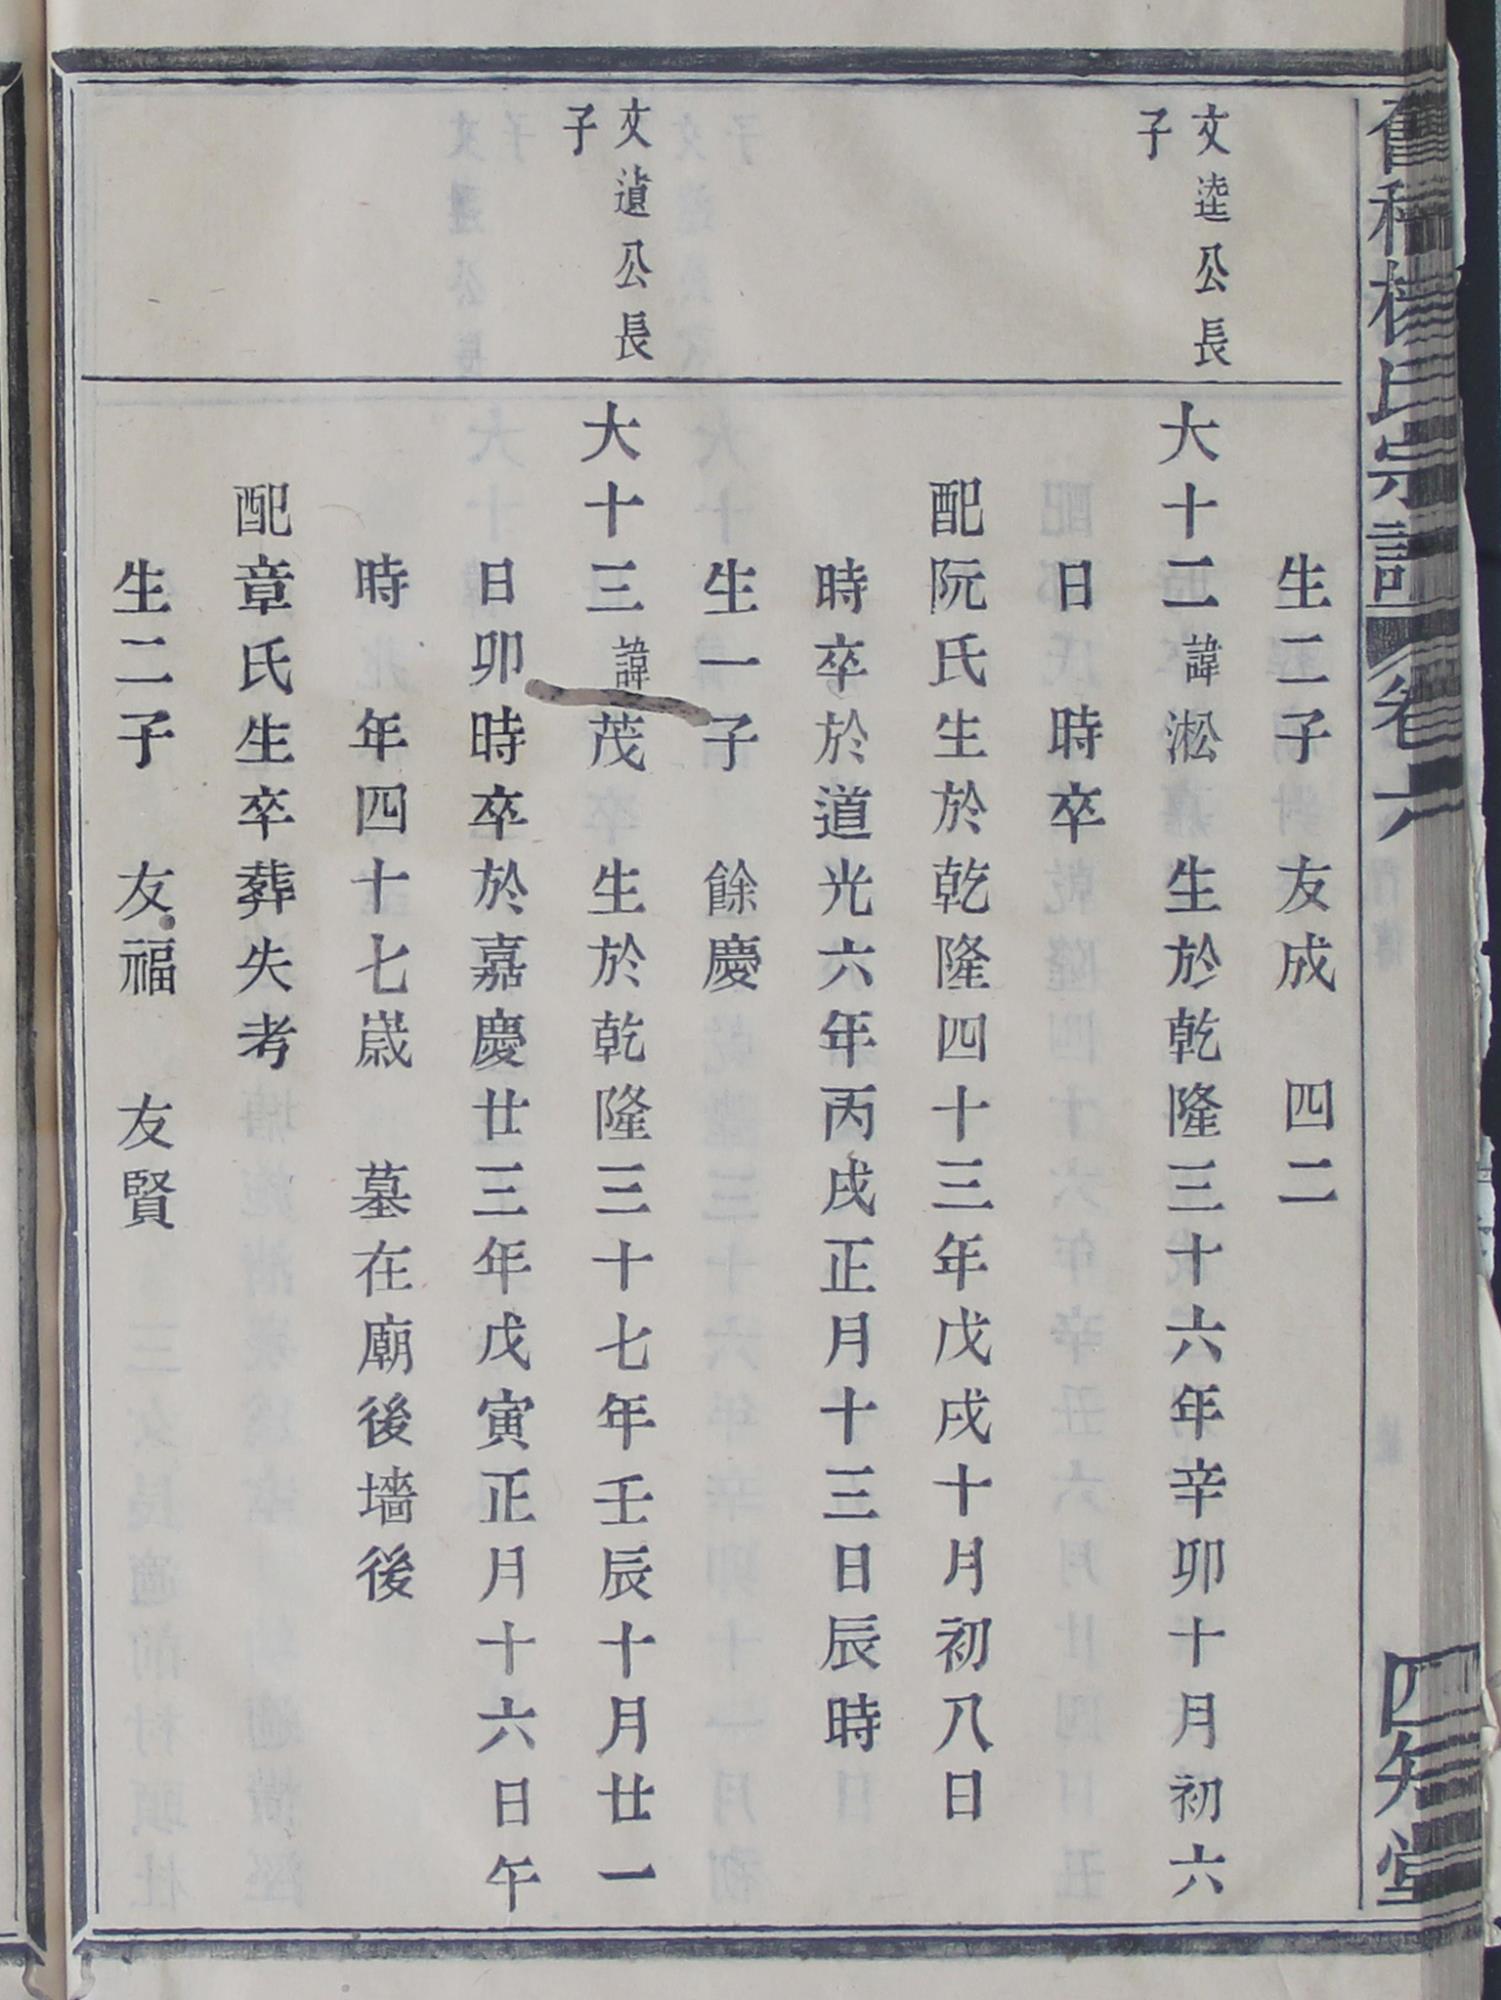 氏宗譜 卷六 四知堂
生二子 友成 四二
文逵公長
子
大十二諱淞 生於乾隆三十六年辛卯十月初六
日 時卒
配阮氏生於乾隆四十三年戊戌十月初八日
時卒於道光六年丙戌正月十三日辰時
生一子 餘慶
文遉公長
子
大十三諱茂 生於乾隆三十七年壬辰十月廿一
日卯時卒於嘉慶廿三年戊寅正月十六日午
時 年四十七嵗 墓在廟後墻後
配章氏生卒葬失考
生二子 友福 友賢